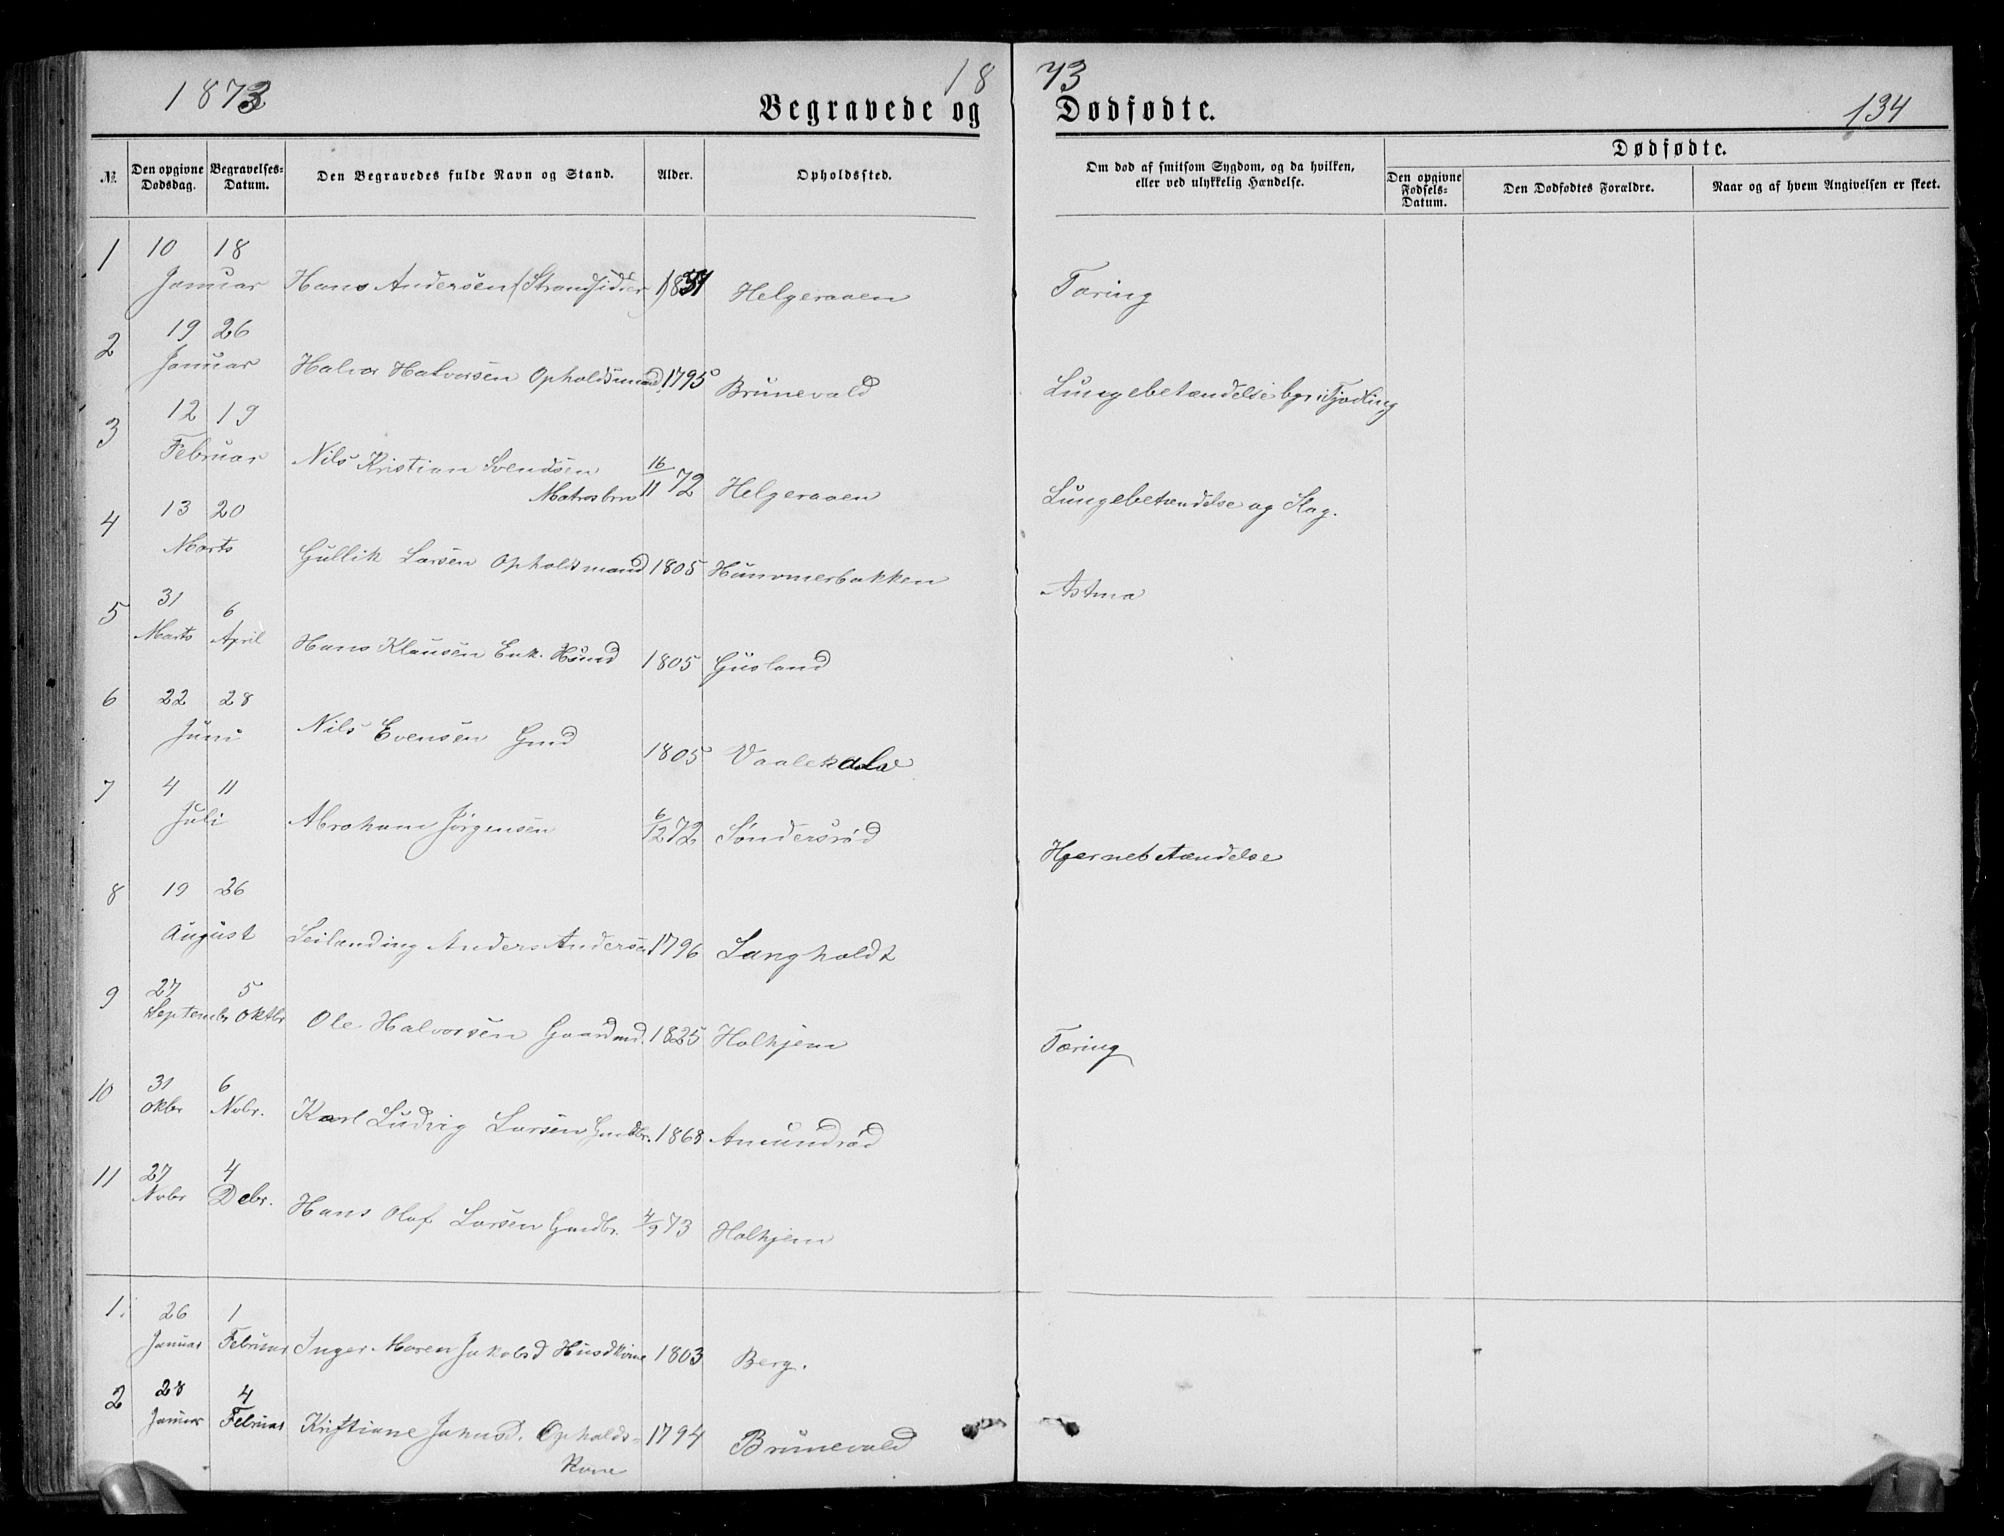 1873
18 73
134
Begravede og Dødfødte.
№
Den opgivne Dødsdag.
Begravelses-Datum.
Den Begravedes fulde Navn og Stand.
Alder.
Opholdssted.
Om død af smitsom Sygdom, og da hvilken, eller ved ulykkelig Hændelse.
Dødfødte.
Den opgivne Fødsels-Datum.
Den Dødfødtes Forældre.
Naar og af hvem Angivelsen er skeet.
1 10 18
Januar Hans Andersen (Strandsidder) Helgeraaen Tæring
2 19 26
Januar Halvor Halvorsen Opholdsmand 1795 Brunevald Lungebetændelse
3 12 19
Februar Nils Kristian Svendsen 16/11 72 Helgeraaen Lungebetændelse og Slag.
Matrosbrn
4 13 20
Marts Gullik Larsen Opholdsmand 1805 Hummerbakken Astma
5 31 6
Marts April Hans Klausen Enk. Hsmd 1805 Gusland
6 22 28
Juni Nils Evensen Gmd 1805
7 4 11
Juli Abraham Jørgensen 6/12 72 Søndersrød Hjernebetændelse
8 19 26
August Leilending Anders Andersen 1796 Langholdt
9 27 5
Septembr Oktbr Ole Halvorsen Gaardmd. 1825 Holhjem Tæring
10 31 6
Okbr Nvbr. Karl Ludvig Larsen Gmdbr. 1868 Amundrød
11 27 4
Nvbr Debr. Hans Olaf Larsen Gmdbr. 4/9 73 Holhjem
1. 26 1
Januar Februar Inger Maren Jakobsd Husdkone 1803 Berg.
2 28 4
Januar Februar Kristiane Johnsd. Opholds- 1794 Brunevald
Kone